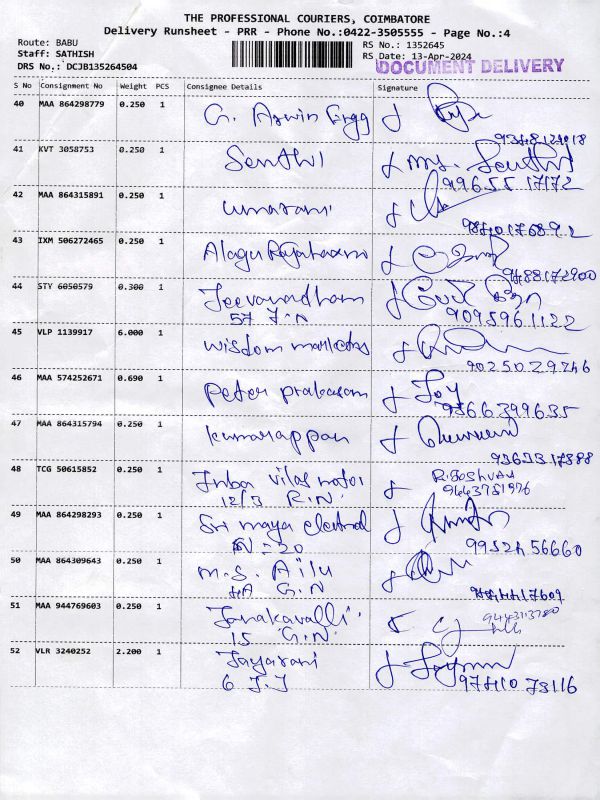 THE PROFESSIONAL COURIERS, COIMBATORE
Delivery Runsheet - PRR - Phone No.:0422-3505555 - Page No.:4
Route: BABU
Staff: SATHISH
DRS No.: DCJB135264504
RS No.: 1352645
RS Date: 13-Apr-2024
DOCUMENT DELIVERY
S No Consignment No Weight PCS Consignee Details Signature
40 MAA 864298779 0.250 1 G. Aswin Engg
41 KVT 3058753 0.250 1 Senthil Ms. Senthil
99655 17172
42 MAA 864315891 0.250 1 umarani
43 IXM 506272465 0.250 1 Alagu Rajalaxmi
9488172900
44 STY 6050579 0.300 1 Jeevanadham
57 J.N 9095961122
45 VLP 1139917 6.000 1 Wisdom marketing
90250 29246
46 MAA 574252671 0.690 1 Peter prakasam Joy
9566399635
47 MAA 864315794 0.250 1 kumarappan
93633 17888
48 TCG 50615852 0.250 1 Inba vilas motor R. JOSHVAA
12/3 R.N. 9443751976
49 MAA 864298293 0.250 1 Sri maya electrical
SN = 20 99524 56660
50 MAA 864309643 0.250 1 M.S. Ailu
4A G.N
51 MAA 944769603 0.250 1 Janakavalli
15 G.N
52 VLR 3240252 2.200 1 Jayarani
6 J.J 97410 73116